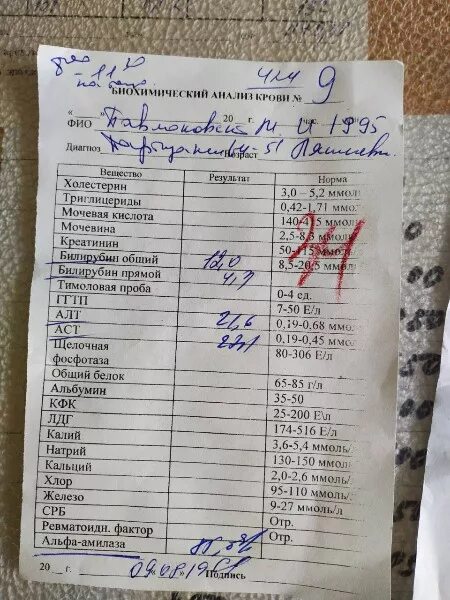 9
БИОХИМИЧЕСКИЙ АНАЛИЗ КРОВИ №
"___" ________ 20 г.
ФИО М. И 1995
Диагноз Возраст
Вещество Результат Норма
Холестерин 3,0 – 5,2 ммоль
Триглицериды 0,42-1,71 ммол
Мочевая кислота 140-415 ммол
Мочевина 2,5-8,3 ммоль
Креатинин 50-115 ммол
Билирубин общий 12,0 8,5-20,5 ммол
Билирубин прямой 4,7
Тимоловая проба 0-4 ед.
ГГТП 7-50 Е/л
АЛТ 21,6 0,19-0,68 ммо
АСТ 0,19-0,45 ммо
Щелочная 80-306 Е/л
фосфотаза
Общий белок 65-85 г/л
Альбумин 35-50
КФК 25-200 Е\л
ЛДГ 174-516 Е/л
Калий 3,6-5,4 ммоль/
Натрий 130-150 ммол
Кальций 2,0-2,6 ммоль/
Хлор 95-110 ммоль/
Железо 9-27 ммоль/л
СРБ Отр.
Ревматоидн. фактор Отр.
Альфа-амилаза
20 __ г. 09.08.19 Подпись